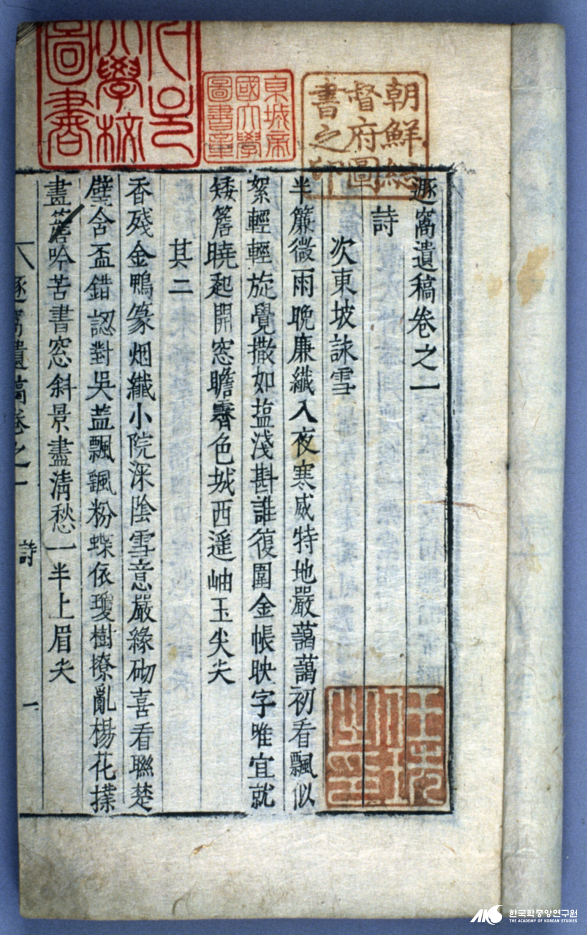 朝鮮總
督府圖
書之印
京城帝
國大學
圖書章
서울
大學校
圖書
遯窩遺稿卷之一
詩
次東坡詠雪
半簾微雨晚廉纖入夜寒威特地嚴藹藹初看飄似
絮輕輕旋覺撒如塩淺斟誰復圍金帳映字唯宜就
矮簷曉起開窓瞻霽色城西遥岫玉尖尖
其二
香殘金鴨篆烟纖小院深陰雪意嚴緣砌喜看聯楚
璧合盃錯認對吳盐飄颻粉蝶依瓊樹撩亂楊花撲
畫簷吟苦書窓斜景盡淸愁一半上眉尖
遯窩遺稿卷之一 詩 一
한국학중앙연구원
THE ACADEMY OF KOREAN STUDIES